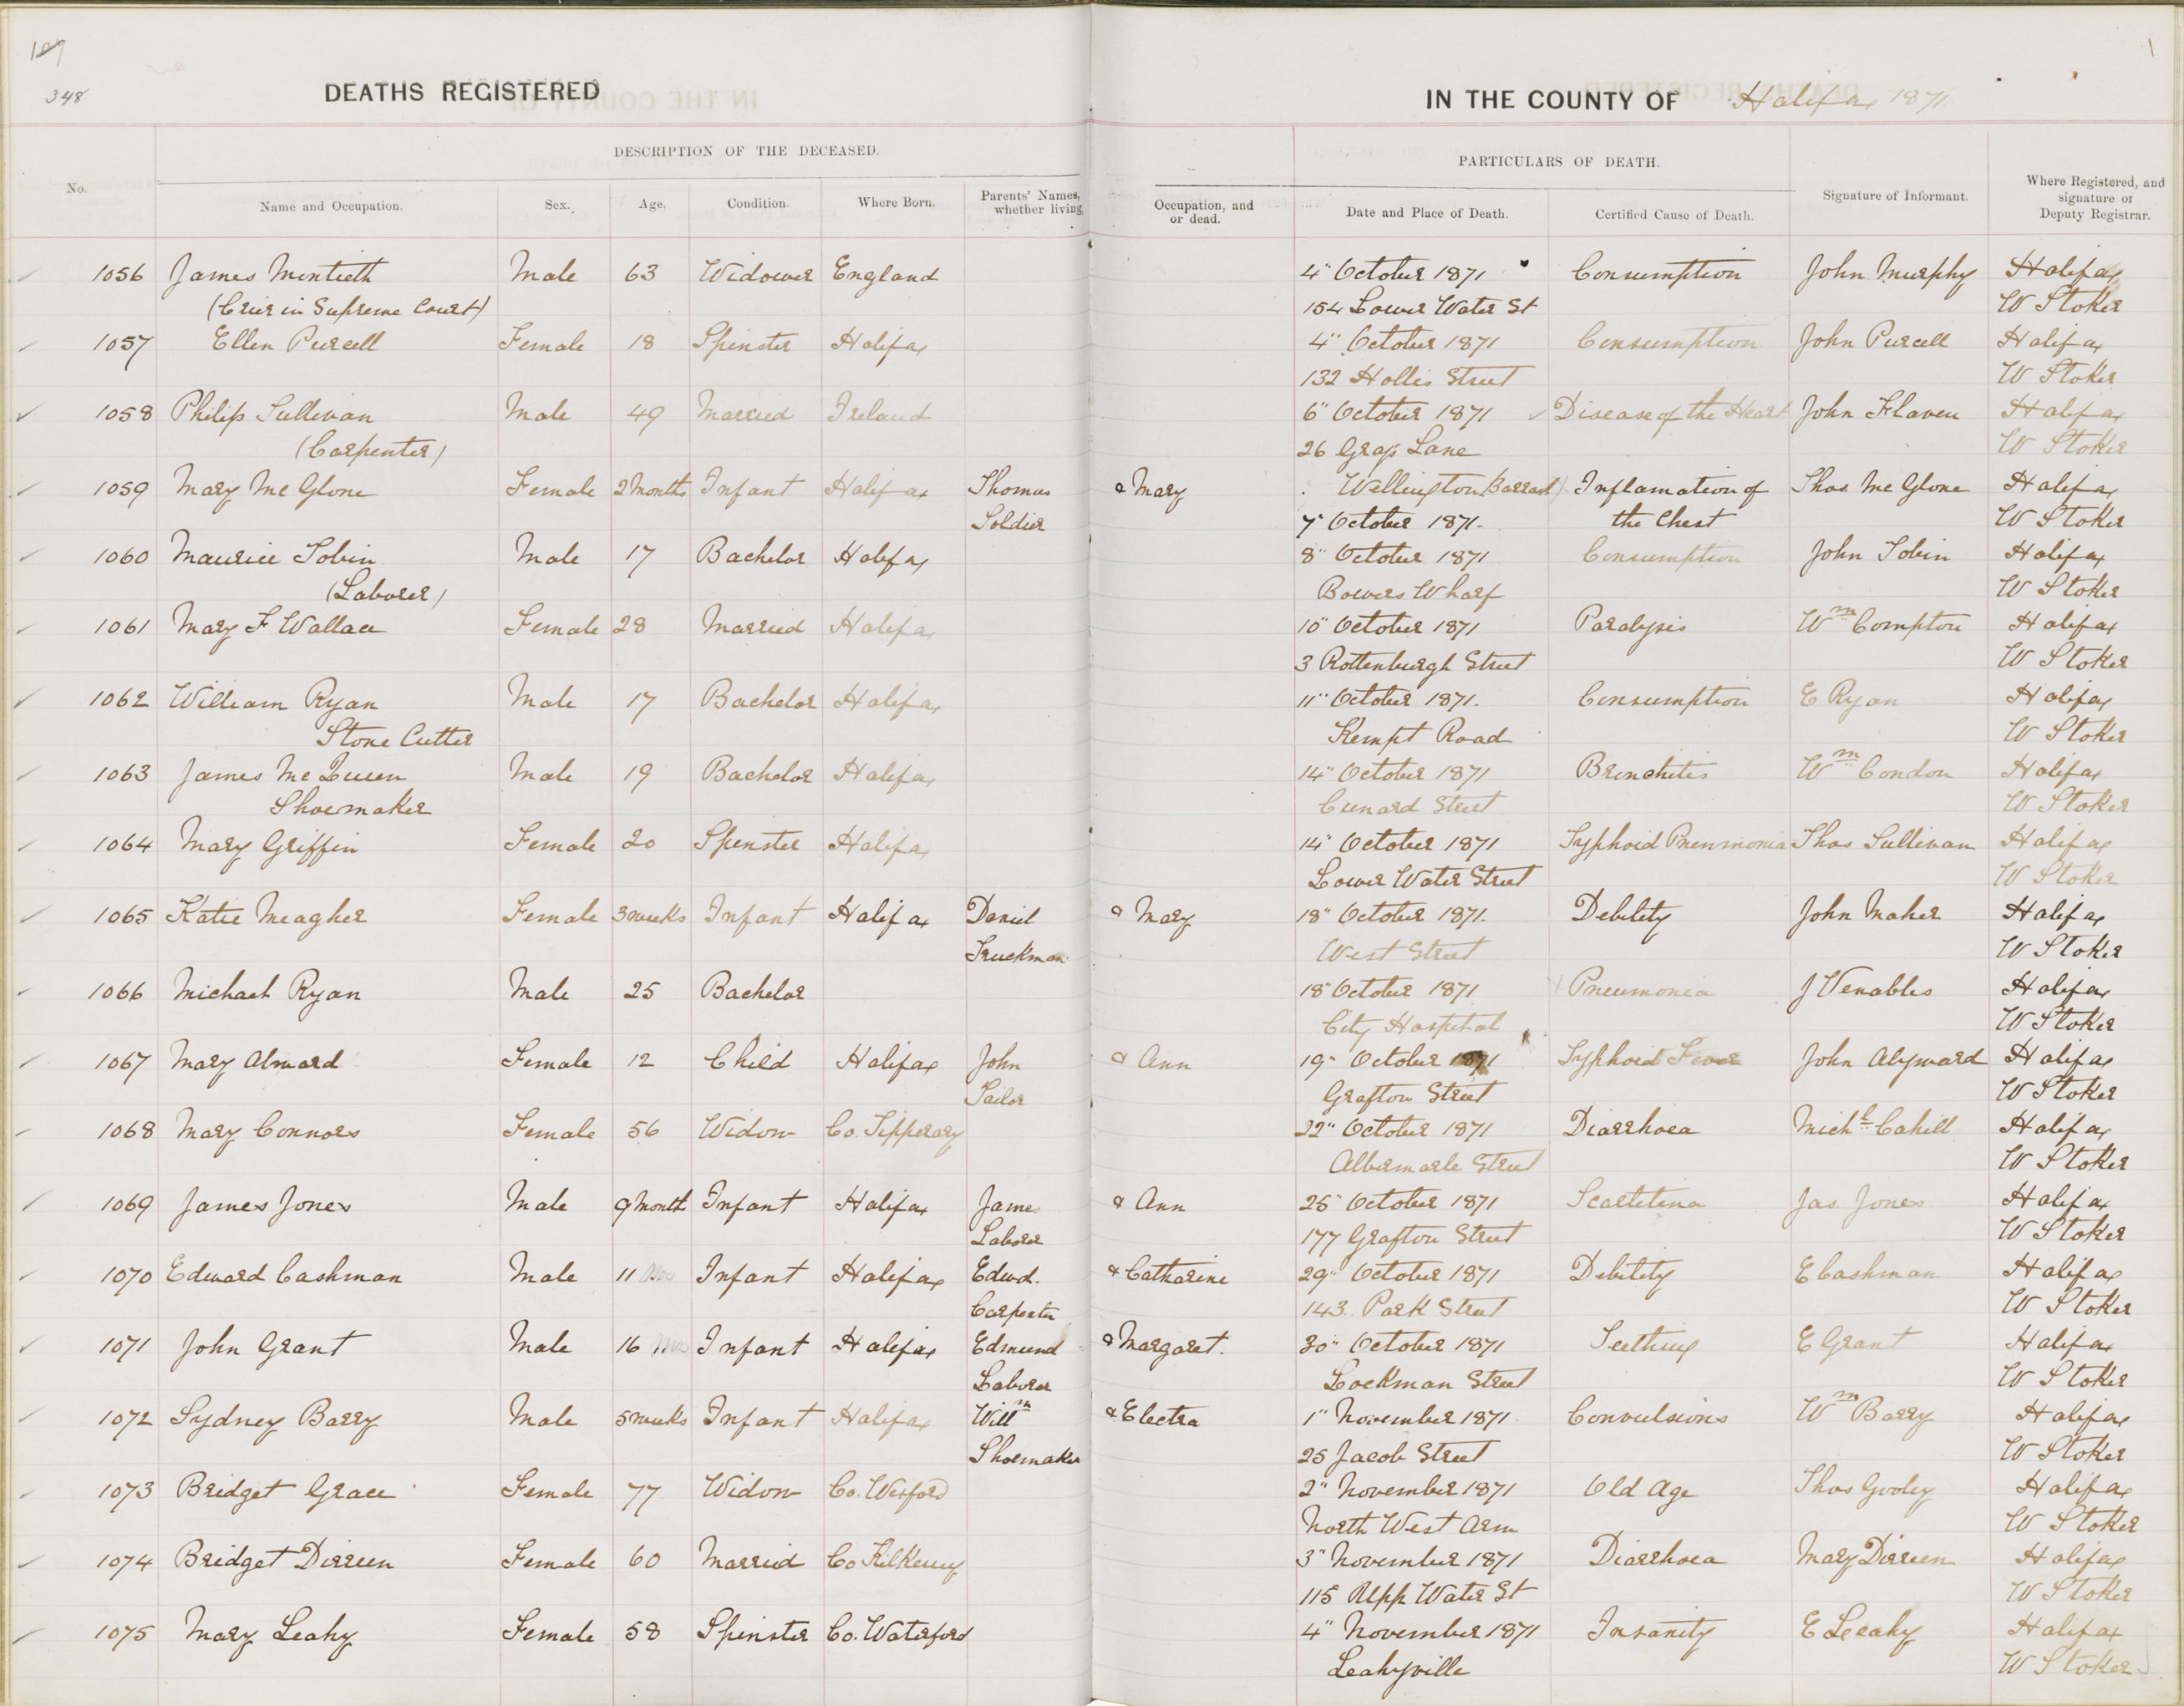 109
348
DEATHS REGISTERED IN THE COUNTY OF Halifax 1871.
DESCRIPTION OF THE DECEASED.
PARTICULARS OF DEATH.
No. Name and Occupation. Sex. Age. Condition. Where Born. Parents' Names, whether living, Occupation, and or dead. Date and Place of Death. Certified Cause of Death. Signature of Informant. Where Registered, and signature of Deputy Registrar.
1056 James Montieth Male 63 Widower England 4" October 1871 Consumption John Murphy Halifax
(Crier in Supreme Court) 154 Lower Water St W Stoker
1057 Ellen Purcell Female 18 Spinster Halifax 4" October 1871 Consumption John Purcell Halifax
132 Hollis Street W Stoker
1058 Philip Sullivan Male 49 Married Ireland 6" October 1871 Disease of the Heart John Flaven Halifax
(Carpenter) 26 Grays Lane W Stoker
1059 Mary Mc Glone Female 2 Months Infant Halifax Thomas & Mary Wellington Barrack Inflamation of Thos. Mc Glone Halifax
Soldier 7" October 1871. the Chest W Stoker
1060 Maurice Tobin Male 17 Bachelor Halifax 8" October 1871 Consumption John Tobin Halifax
(Laborer) Bowers Wharf W Stoker
1061 Mary F Wallace Female 28 Married Halifax 10" October 1871 Paralysis Wm Compton Halifax
3 Rottenburgh Street W Stoker
1062 William Ryan Male 17 Bachelor Halifax 11" October 1871. Consumption E Ryan Halifax
Stone Cutter Kempt Road W Stoker
1063 James Mc Queen Male 19 Bachelor Halifax 14" October 1871 Bronchitis Wm Condon Halifax
Shoemaker Cunard Street W Stoker
1064 Mary Griffin Female 20 Spinster Halifax 14" October 1871 Typhoid Pneumonia Thos Sullivan Halifax
Lower Water Street W Stoker
1065 Katie Meagher Female 3 weeks Infant Halifax Daniel & Mary 18" October 1871. Debility John Maher Halifax
Truckman West Street W Stoker
1066 Michael Ryan Male 25 Bachelor 18" October 1871 Pneumonia J Venables Halifax
City Hospital W Stoker
1067 Mary Alward Female 12 Child Halifax John & Ann 19" October 1871 Typhoid Fever John Alyward Halifax
Grafton Street W Stoker
1068 Mary Connors Female 56 Widow Co. Tipperary 22" October 1871 Diarrhoea Michl Cahill Halifax
Albermarle Street W Stoker
1069 James Jones Male 9 Month Infant Halifax James & Ann 25" October 1871 Scarletina Jas Jones Halifax
Laborer 177 Grafton Street W Stoker
1070 Edward Cashman Male 11 Mos Infant Halifax Edwd. & Catharine 29" October 1871 Debility E Cashman Halifax
Carpenter 143 Park Street W Stoker
1071 John Grant Male 16 Mos Infant Halifax Edmund & Margaret. 30" October 1871 Teething E Grant Halifax
Laborer Lockman Street W Stoker
1072 Sydney Barry Male 5 weeks Infant Halifax Willm & Electra 1" November 1871 Convulsions Wm Barry Halifax
Shoemaker 25 Jacob Street W Stoker
1073 Bridget Grace Female 77 Widow Co. Wexford 2" November 1871 Old Age Thos Halifax
North West Arm W Stoker
1074 Bridget Dirreen Female 60 Married Co Kilkenny 3" November 1871 Diarrhoea Mary Dirreen Halifax
115 Upp Water St W Stoker
1075 Mary Leahy Female 58 Spinster Co. Waterford 4" November 1871 Insanity E Leeahy Halifax
Leahyville W Stoker